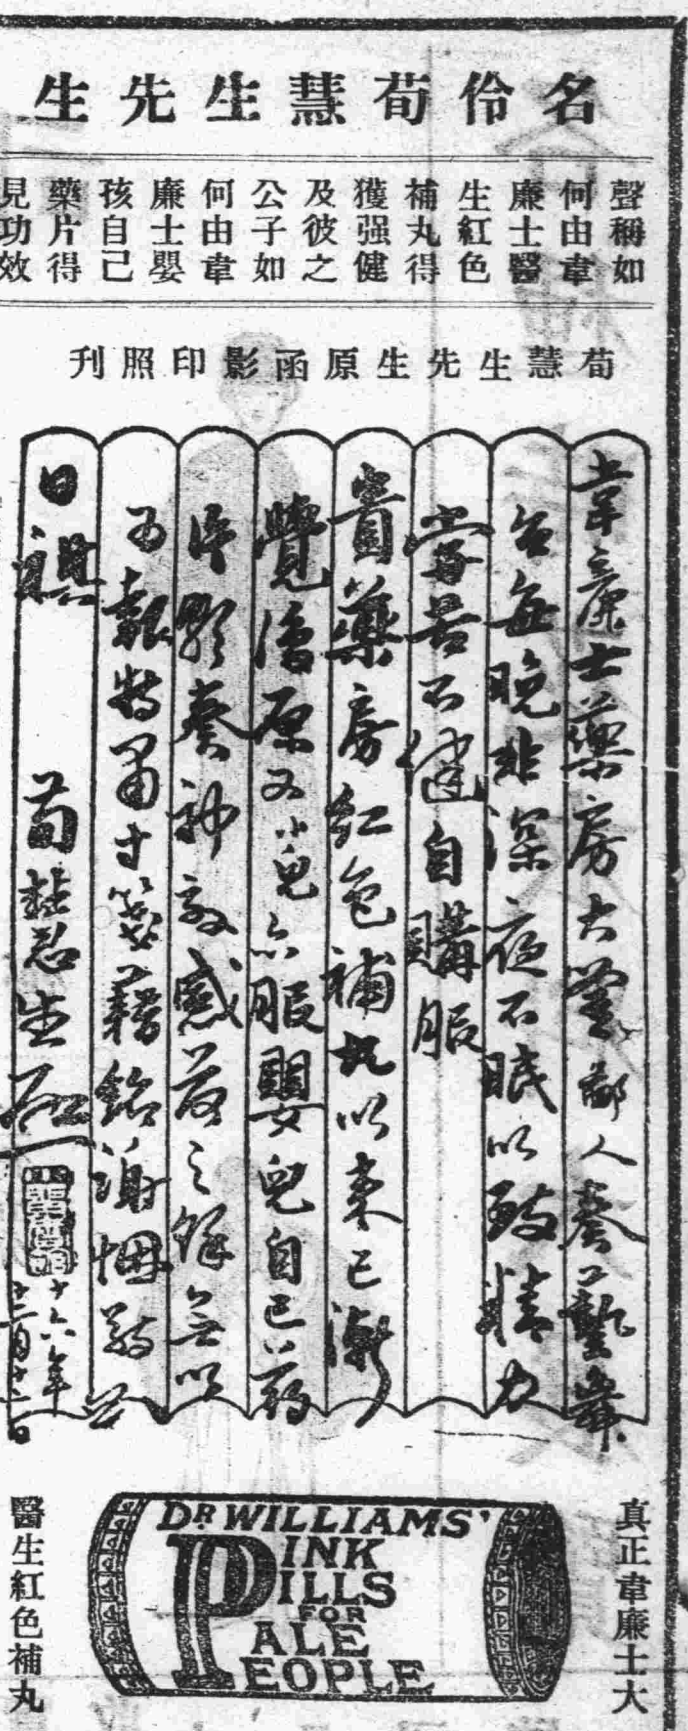 名伶荀慧生先生
聲稱如
何由韋
廉士醫
生紅色
補丸得
獲强健
及彼之
公子如
何由韋
廉士嬰
孩自己
藥片得
見功效
荀慧生先生原函影印照刊
韋廉士藥房大鑒鄙人奏藝舞
台每晚非深夜不眠以致精力
常若不健自購服
貴藥房紅色補丸以來已漸
覺復原又小兒亦服嬰兒自己药
片影奏神效感荷之餘無以
為報特肅寸箋藉銘謝悃敬叩
日祺
荀慧生啟
十六年
十二月十二日
真正韋廉士大
醫生紅色補丸
DR WILLIAMS'
PINK
PILLS
FOR
PALE
PEOPLE